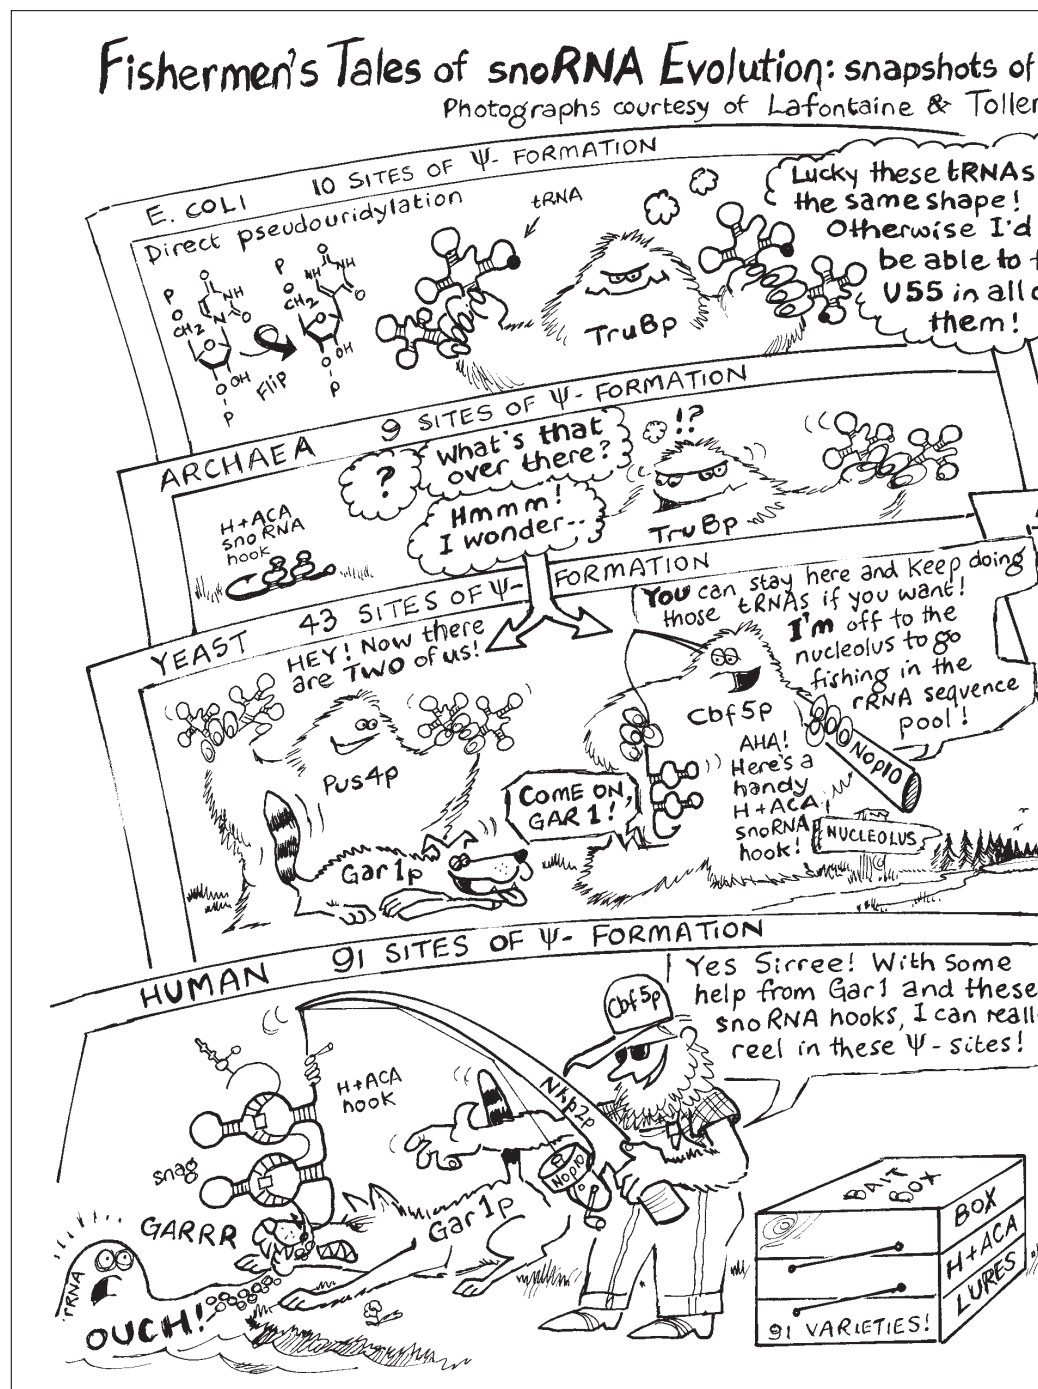 Fishermen's Tales of snoRNA Evolution: snapshots of
Photographs courtesy of Lafontaine &
E. COLI 10 SITES OF Ψ- FORMATION
Direct pseudouridylation
tRNA
P
O
CH2
O
NH
O
N
O
OH
O
P
Flip
P
O
CH2
O
HN
NH
O
O
OH
O
P
TruBp
Lucky these tRNAs
the same shape!
Otherwise I'd
be able to
U55 in all
them!
ARCHAEA 9 SITES OF Ψ- FORMATION
H+ACA
snoRNA
hook
?
What's that
over there?
Hmmm!
I wonder..
!?
TruBp
YEAST 43 SITES OF Ψ- FORMATION
HEY! Now there
are TWO of us!
Pus4p
Gar1p
COME ON,
GAR 1!
You can stay here and keep doing
those tRNAs if you want!
I'm off to the
nucleolus to go
fishing in the
rRNA sequence
pool!
Cbf5p
Nop10
AHA!
Here's a
handy
H+ACA
snoRNA
hook!
NUCLEOLUS
HUMAN 91 SITES OF Ψ- FORMATION
Yes Sirree! With some
help from Gar1 and these
snoRNA hooks, I can
reel in these Ψ-sites!
Cbf5p
H+ACA
hook
Nhp2p
Nop10
snag
GARRR
Gar1p
rRNA
OUCH!
BAIT
BOX
BOX
H+ACA
LURES
91 VARIETIES!